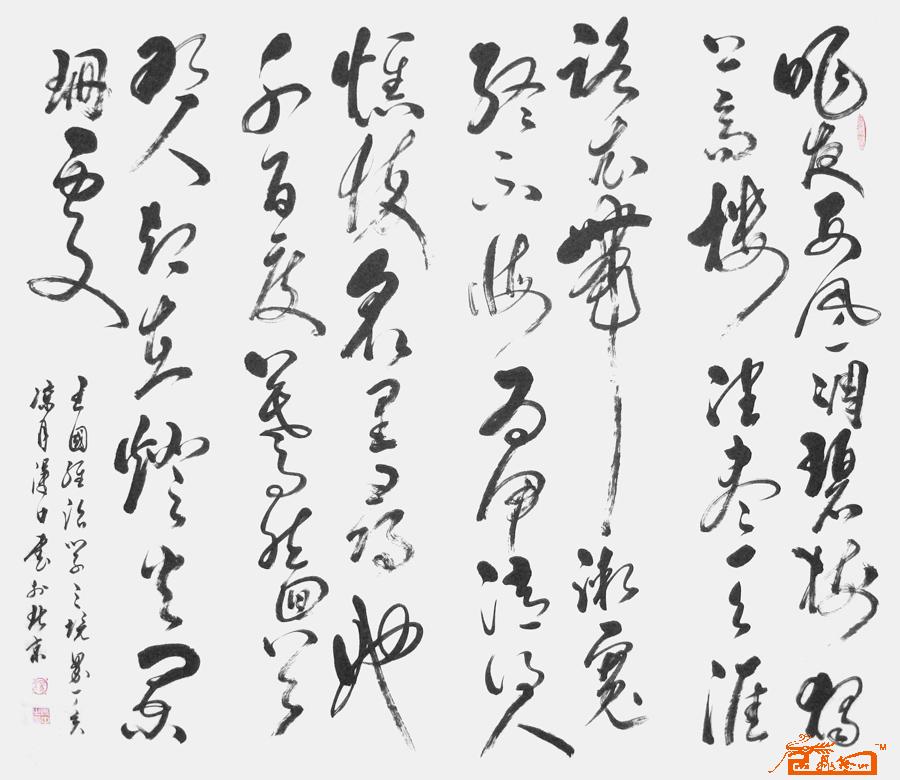 昨夜西风凋碧樹獨
上高樓望盡天涯
路衣帶漸寬
終不悔为伊消得人
憔悴眾里尋他
千百度驀然回首
那人却在燈火闌
珊處
王國維治學三境界丁亥
涼月日書於北京